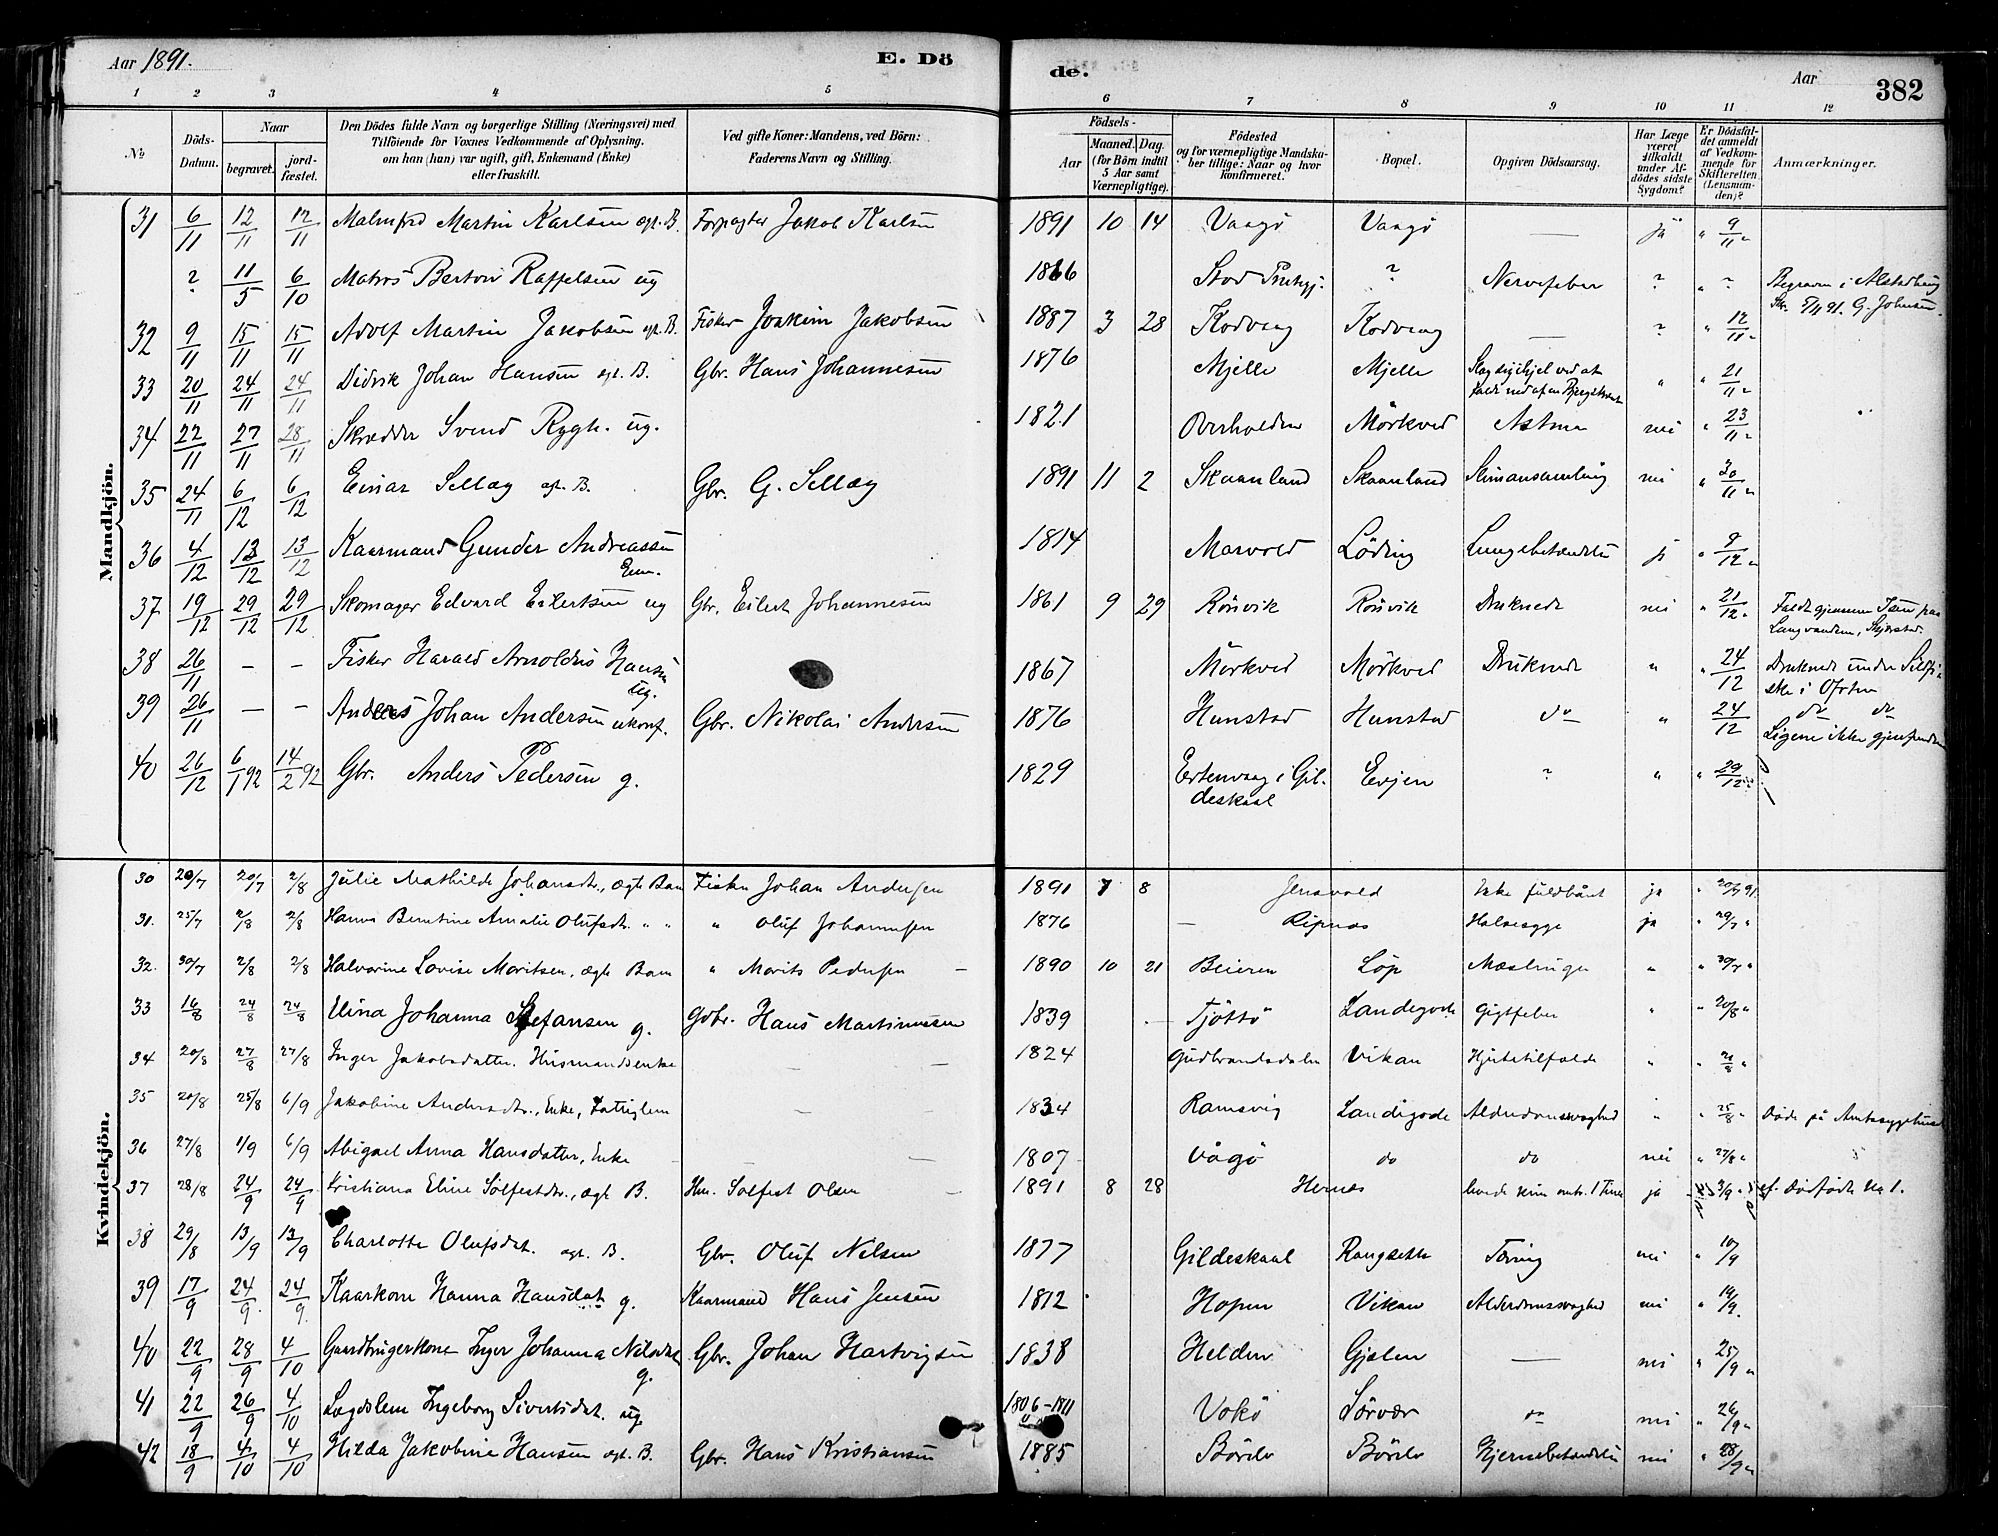 Aar 1891. E. Dö de. Aar 382
1 2 3 4 5 6 7 8 9 10 11 12
No
Döds-Datum.
Naar
begravet.
jord-fæstet.
Den Dödes fulde Navn og borgerlige Stilling (Næringsvei) med
Tilföiende for Voxnes Vedkommende af Oplysning.
om han (hun) var ugift, gift, Enkemand (Enke)
eller fraskilt.
Ved gifte Koner: Mandens, ved Börn:
Faderens Navn og Stilling.
Födsels-
Aar
Maaned. Dag.
(for Börn indtil
5 Aar samt
Værnepligtige).
Födested
og for værnepligtige Mandska-
ber tillige: Naar og hvor
konfirmeret.
Bopæl.
Opgiven Dödsaarsag.
Har Læge
været
tilkaldt
under Af-
dödes sidste
Sygdom?
Er Dödsfal-
det anmeldt
af Vedkom-
mende for
Skifteretten
(Lensman-
den)?
Anmærkninger.
Mandkjön.
31 6/11 12/11 12/11 Malmfrd Martin Karlsen egt. B. Forpagter Jakob Karlsen 1891 10 14 Vaagø Vaagø — ja " 9/11 "
? 11/5 6/10 Matros Berton Raffelsen ug 1866 Stod ? Nervefeber ? " ? Begraven i
5/11 91. G. Johnsen.
32 9/11 15/11 15/11 Adolf Martin Jakobsen egt. B. Fisker Joakim Jakobsen 1887 3 28 Kodvaag Kodvaag — ? " 12/11 "
33 20/11 24/11 24/11 Didrik Johan Hansen egt. B. Gbr. Hans Johannesen 1876 Mjelle Mjelle Slog sig ihjel ved at
falde ned af en " " 21/11 "
34 22/11 27/11 28/11 Skrædder Svend Rygh. ug. 1821 Overhalden Mörkved Astma nei " 23/11 "
35 24/11 6/12 6/12 Einar Sellæg egt. B. Gbr. G. Sellæg 1891 11 2 Skaanland Skaanland Slimansamling nei " 30/11 "
36 4/12 13/12 13/12 Kaarmand Gunder Andreassen
Enm. 1814 Marvold Löding Lungebetændelse j " 9/12 "
37 19/12 29/12 29/12 Skomager Edvard Eilertsen ug Gbr. Eilert Johannesen 1861 9 29 Rönvik Rönvik Druknede nei " 21/12 " Faldt gjennem Isen paa
Langvanden, Skjerstad.
38 26/11 — — Fisker Harald Arnoldus Hansen
ug. 1867 Mörkved Mörkved Druknede " " 24/12 Druknede under Sildfi-
ske i Ofoten
39 26/11 — — Anders Johan Andersen ukonf. Gbr. Nikolai Andersen 1876 Hunstad Hunstad do " 24/12 do do
Ligene ikke gjenfundne
40 26/12 6/1 92 14/2 92 Gbr. Anders Pedersen g. 1829 Ertenvaag i Gil-
deskaal Evjen ? " " 29/12 "
Kvindekjön.
30 20/7 20/7 2/8 Julie Mathilde Johansdtr., ægte Barn Fisker Johan Andersen 1891 7 8 Jensvold Ikke fuldbåret ja " 20/7 91.
31. 25/7 2/8 2/8 Hanna Berntine Amalie Olufsdtr. " " " Oluf Johannesen 1876 — Ripnes Halssyge ja " 29/7 "
32. 30/7 2/8 2/8 Halvarine Lovise Moritsen, ægte Barn " Morits Pedersen — 1890 10 21 Beieren Löp Mæslinger " " 30/7 "
33 16/8 24/8 24/8 Elina Johanna Stefansen g. Gdbr. Hans Martinussen 1839 — Tjöttö Landegode Gigtfeber " " 20/8 "
34 20/8 27/8 27/8 Inger Jakobsdatter. Husmandsenke — — 1824 Gudbrandsdalen Vikan Hjertetilfælde " " 21/8 "
35 20/8 25/8 6/9 Jakobine Andersdtr., Enke, Fattiglem — — 1834 Ramsvig Landegode Alderdomssvaghed " " 25/8 " Døde på Amtssygehuset
36 27/8 1/9 6/9 Abigael Anna Hansdatter, Enke — — — 1807 Vågö do do nei " 27/8 "
37 28/8 24/9 24/9 Kristiana Eline Sölfestdtr., ægte B. Hm. Solfest Olsen — 1891 8 28 Hernes levede kun omtr. 1 Time ja 3/9 cf. Dødfødte No 1.
38 29/8 13/9 13/9 Charlotte Olufsdat. egt. B. Gbr. Oluf Nelsen 1877 Gildeskaal Rangsette Tæring nei " 10/9
39 17/9 24/9. 24/9 Kaarkone Hanna Hansdat g. Kaarmand Hans Jensen 1812 Hopen Vikan Alderdomssvaghed nei " 19/9.
40 22/9 28/9 4/10 Gaardbrugerkone Inger Johanna Nilsdat
g. Gbr. Johan Hartvigsen 1838 Helden Gjælen — nei " 25/9 "
41 22/9 26/9 4/10 Lægdslem Ingeborg Sivertsdat. ug. 1806-1811 Vokö Sörvær do nei " 26/9 "
42 18/9 4/10 4/10 Hilda Jakobine Hansen egt. B. Gbr. Hans Kristiansen 1885 Börelv Börelv Hjernebetændelse nei " 28/9 "